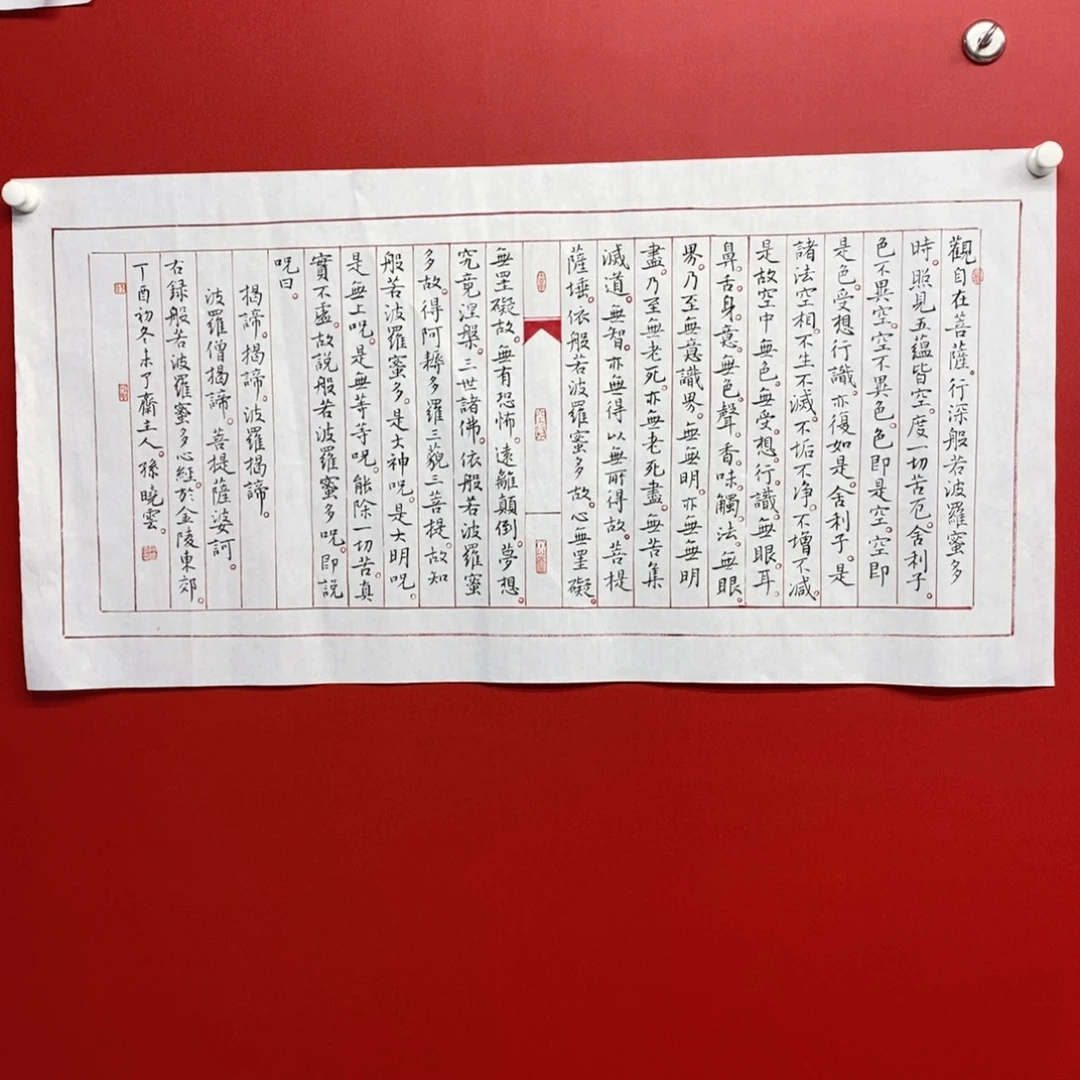 觀自在菩薩。行深般若波羅蜜多
時。照見五蘊皆空。度一切苦厄。舍利子。
色不異空。空不異色。色即是空。空即
是色。受想行識。亦復如是。舍利子。是
諸法空相。不生不滅。不垢不净。不增不减。
是故空中無色。無受。想。行。識。無眼。耳。
鼻。舌。身。意。無色。聲。香。味。觸。法。無眼。
界。乃至無意識界。無無明。亦無無明
盡。乃至無老死。亦無老死盡。無苦集
滅道。無智。亦無得。以無所得故。菩提
薩埵。依般若波羅蜜多故。心無罣礙。
無罣礙故。無有恐怖。遠離顛倒。夢想。
究竟涅槃。三世諸佛。依般若波羅蜜
多故。得阿耨多羅三藐三菩提。故知
般若波羅蜜多。是大神呪。是大明呪。
是無上呪。是無等等呪。能除一切苦。真
實不虛。故説般若波羅蜜多呪。即説
呪曰。
揭諦。揭諦。波羅揭諦。
波羅僧揭諦。菩提薩婆訶。
右録般若波羅蜜多心經。於金陵東郊。
丁酉初冬未了齋主人。孫曉雲。